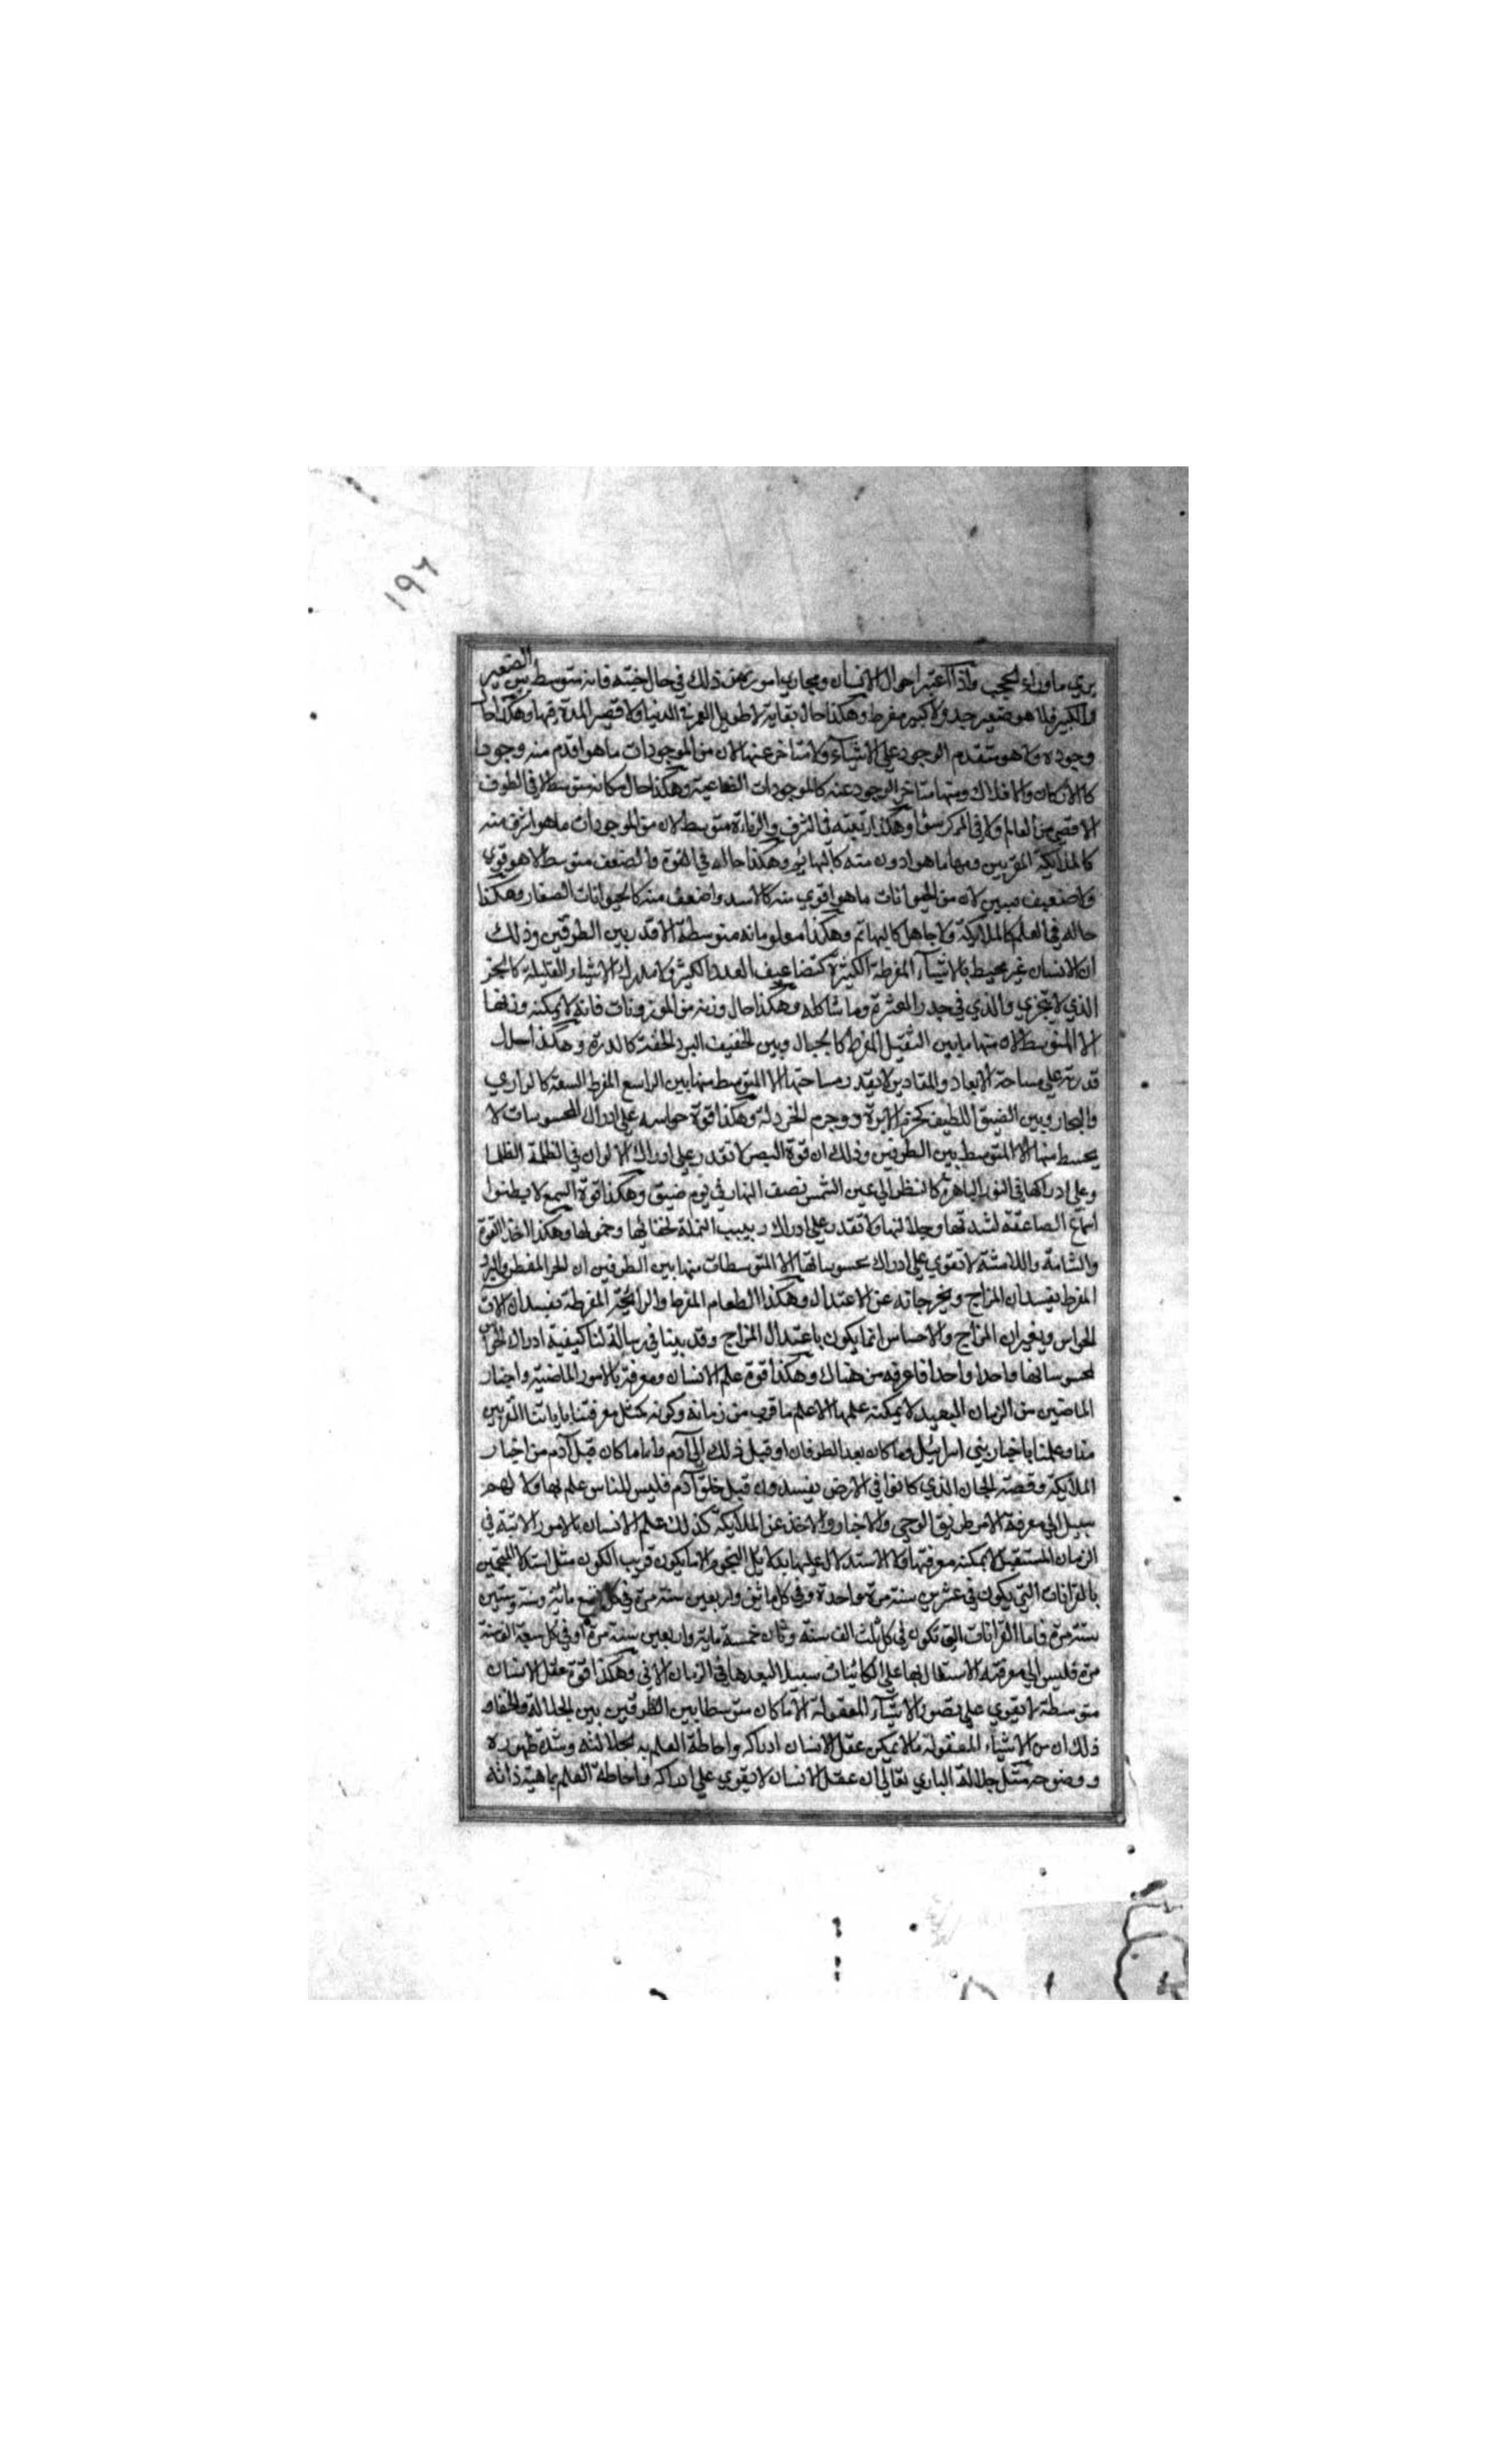 ١٩٦
يري ما وراء الحجب واذا اعتبر احوال الانسان ومجاري اموره من ذلك في حال جثته فانه متوسط بين الصغير
والكبير فلا هو صغير جدا ولا كبير مفرط وهكذا حال بقايه لا طويل العمر في الدنيا ولا قصير المدة فيها وهكذا حال
وجوده ولا هو متقدم الوجود علي الاشياء ولا متاخر عنها لان من الموجودات ما هو اقدم منه وجودا
كالاركان والافلاك ومنها متاخر الوجود عنه كالموجودات الصناعية وهكذا حال مكانه متوسط لا في الطرف
الاقصي من العالم ولا في المركز سوا وهكذا رتبته في الشرف والرذالة متوسط لان من الموجودات ما هو اشرف منه
كالملائكة المقربين ومنها ما هو ادون منه كالبهائم وهكذا حاله في القوة والضعف متوسط لا هو قوي
ولا ضعيف مبين لان من الحيوانات ما هو اقوي منه كالاسد واضعف منه كالحيوانات الصغار وهكذا
حاله في العلم كالملائكة ولا جاهل كالبهائم وهكذا معلوماته متوسطة الاقدر بين الطرفين وذلك
ان الانسان غير محيط بالاشياء المفرطة الكثيرة كتضاعيف العدد الكثير ولا مدرك الاشياء القليلة كالجزء
الذي لا يتجزي والذي في جدر العشرة وما شاكله وهكذا حال وزنه من الموزونات فانه لا يمكنه وزنها
الا المتوسط الان منها ما بين الثقيل المفرط كالجبال وبين الخفيف الخفة كالذرة وهكذا حال
قدرته علي مساحة الابعاد والمقادير لا يقدر مساحتها الا المتوسط منها بين الواسع المفرط السعة كالبراري
والبحار وبين الضيق اللطيف كخرم الابرة ووجرم الخردلة وهكذا قوة حواسه علي ادراك المحسوسات لا
يحسط منها الا المتوسط بين الطرفين وذلك ان قوة البصر لا تقدر علي ادراك الالوان في الظلمة الظلما
وعلي ادراكها في النور الباهرة كالنظر الي عين الشمس نصف النهار في يوم ضيق وهكذا قوة السمع لا يطيق
اسماع الصاعقة لشدتها وجلالتها ولا تقدر علي ادراك دبيب النملة لخفائها وخمولها وهكذا القوة
والشامة واللامسة لا تقوي علي ادراك محسوساتها الا المتوسطات منها بين الطرفين ان الحر المفطر والبرد
المفرط يفسدان المزاج ويخرجانه عن الاعتدال وهكذا الطعام المفرط والرايحة المفرطة يفسدان الات
الحواس ويغيران المزاج والاحساس انما يكون باعتدال المزاج وقد بينا في رسالة لنا كيفية ادراك الحواس
لمحسوساتها واحدا واحدا فاعرفه من هناك وهكذا قوة علم الانسان ومعرفته بالامور الماضية واخبار
الماضين من الزمان البعيد لا يمكنه علمها الا علم ما قرب من زمانه وكونه كمثل معرفتنا بابائنا القريبين
منا وعلمنا باخبار بني اسرائيل وما كان بعد الطوفان او قبل ذلك الي آدم فاما ما كان قبل آدم من اخبار
الملائكة وقصة الجان الذي كانوا في الارض يفسدون قبل خلق آدم فليس للناس علم بها ولا لهم
سبيل الي معرفة الامر طريق الوحي والاخبار والاخذ عن الملائكة كذلك علم الانسان بالامور الاتية في
الزمان المستقبل لا يمكنه معرفتها ولا الاستدلال عليها بدلايل النجوم الا ما يكون قريب الكون مثل استدلال المنجمين
بالقرانات التي يكون في عشرين سنة مرة واحدة وفي كل مائتي واربعين سنة مرة في كل تسع مائة وسنة وستين
سنة مرة فاما القرانات التي تكون في كل ثلث الف سنة وثمان خمسة مايه واربعين سنة مرة او في كل سبعة الف سنة
مرة فليس الي معرفته الاستدلال بها علي الكائنات سبيلا لبعدها في الزمان الاتي وهكذا قوة عقل الانسان
متوسطة لا يقوي علي تصور الاشياء المعقولة الا ما كان متوسطا بين الطرفين بين الجلالة والخفاء
ذلك ان من الاشياء المعقولة ما لا يمكن عقل الانسان ادراكه واحاطة العلم به لجلالته وشدة ظهوره
ووضوحه مثل جلالة الباري تعالي ان عقل الانسان لا يقوي علي ادراكه واحاطة العلم بماهية ذاته